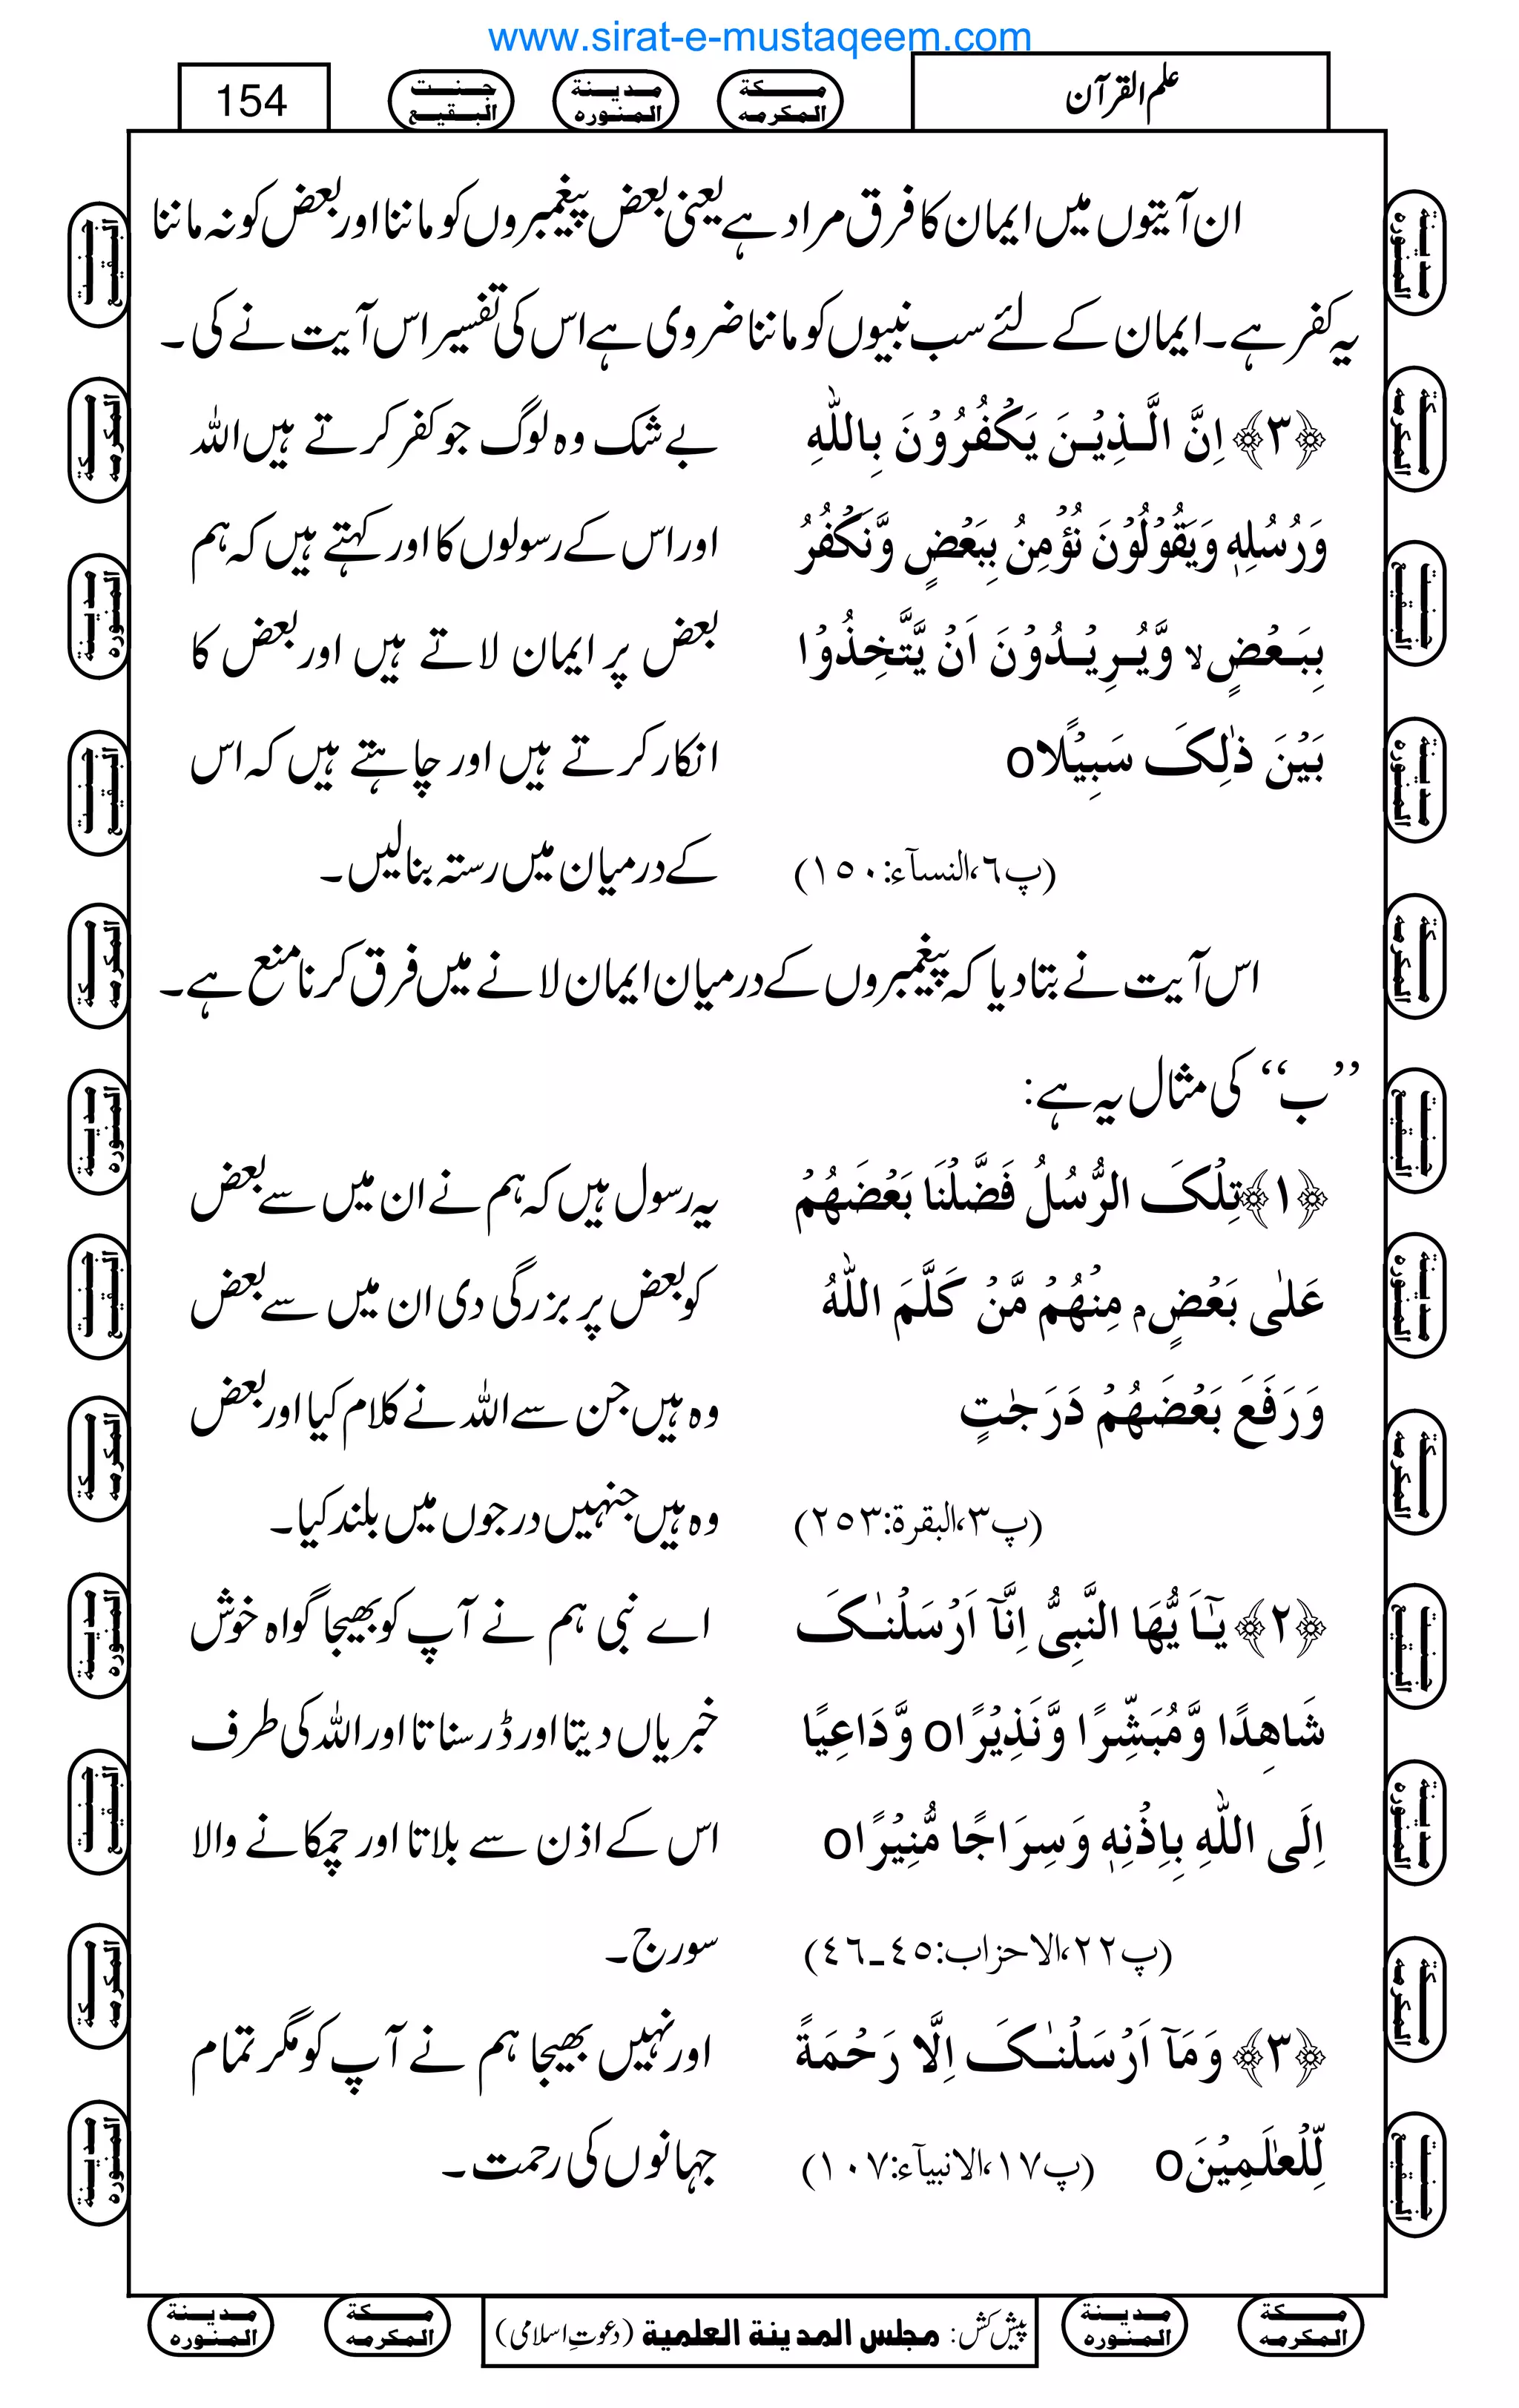 www.sirat-e-mustaqeem.com
علم القرآن
مكة المكرمه
مدينة المنوره
جنت البقيع
154
ان آیتوں میں ایمان کا فرق مراد ہے یعنی بعض پیغمبروں کو ماننا اور بعض کو نہ ماننا
یہ کفر ہے۔ ایمان کے لئے سب نبیوں کو ماننا ضروی ہے اس کی تفسیر اس آیت نے کی ۔
﴿۳﴾ اِنَّ الَّذِیۡنَ یَکۡفُرُوۡنَ بِاللّٰہِ
وَرُسُلِہٖ وَیَقُوۡلُوۡنَ نُؤۡمِنُ بِبَعۡضٍ وَّنَکۡفُرُ
بِبَعۡضٍ ۙ وَّیُرِیۡدُوۡنَ اَنۡ یَّتَّخِذُوۡا
بَیۡنَ ذٰلِکَ سَبِیۡلًاo
(پ٦،النسآء:١٥٠)
بے شک وہ لوگ جو کفر کرتے ہیں اللہ
اور اس کے رسولوں کا اور کہتے ہیں کہ ہم
بعض پر ایمان لاتے ہیں اور بعض کا
انکار کرتے ہیں اور چاہتے ہیں کہ اس
کے درمیان میں رستہ بنالیں ۔
اس آیت نے بتادیا کہ پیغمبروں کے درمیان ایمان لانے میں فرق کرنا منع ہے ۔
’’ب‘‘ کی مثال یہ ہے :
﴿۱﴾تِلۡکَ الرُّسُلُ فَضَّلۡنَا بَعۡضَہُمۡ
عَلٰی بَعۡضٍ ۘ مِنۡہُمۡ مَّنۡ کَلَّمَ اللّٰہُ
وَرَفَعَ بَعۡضَہُمۡ دَرَجٰتٍ
(پ٣،البقرة:٢٥٣)
یہ رسول ہیں کہ ہم نے ان میں سے بعض
کو بعض پر بزرگی دی ان میں سے بعض
وہ ہیں جن سے اللہ نے کلام کیا اور بعض
وہ ہیں جنہیں درجوں میں بلند کیا ۔
﴿۲﴾ یٰۤاَیُّہَا النَّبِیُّ اِنَّاۤ اَرۡسَلۡنٰکَ
شَاہِدًا وَّمُبَشِّرًا وَّنَذِیۡرًاo وَّدَاعِیًا
اِلَی اللّٰہِ بِاِذۡنِہٖ وَسِرَاجًا مُّنِیۡرًاo
(پ٢٢،الاحزاب:٤٥ـ٤٦)
اے نبی ہم نے آپ کو بھیجا گواہ خوش
خبریاں دیتا اور ڈر سناتا اور اللہ کی طرف
اس کے اذن سے بلاتا اور چمکانے والا
سورج ۔
﴿۳﴾ وَمَاۤ اَرۡسَلۡنٰکَ اِلَّا رَحۡمَۃً
لِّلۡعٰلَمِیۡنَo (پ١٧،الانبیآء:١٠٧)
اور نہیں بھیجا ہم نے آپ کو مگر تمام
جہانوں کی رحمت ۔
پیش کش: مجلس المدينة العلمية (دعوتِ اسلامی)